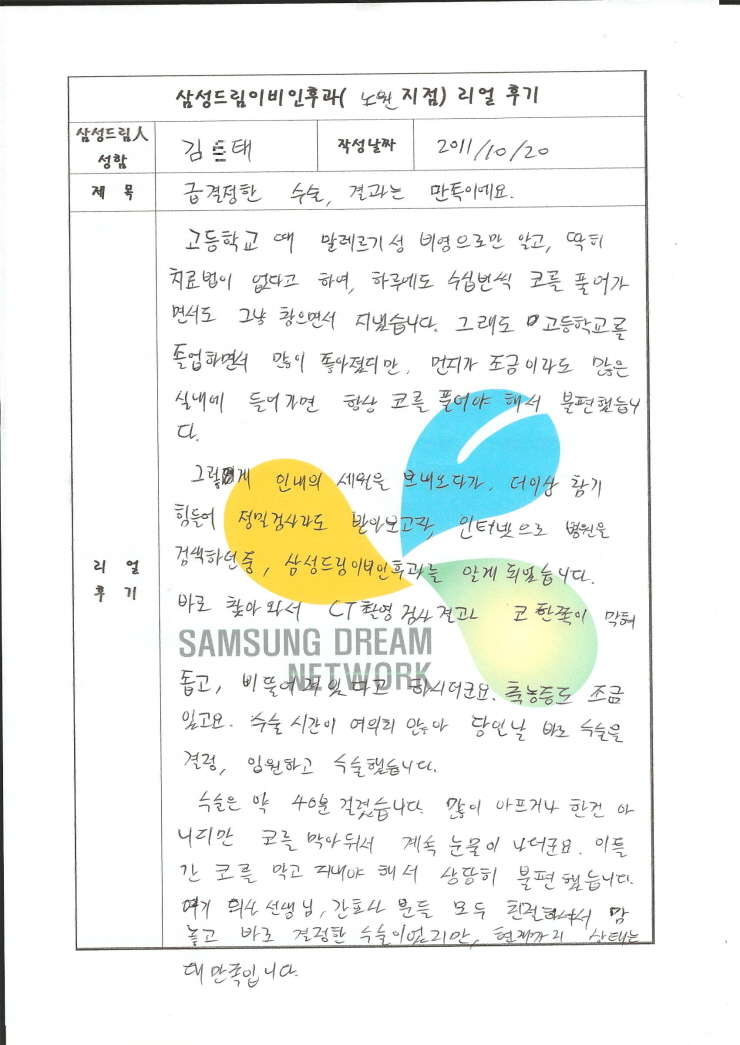 삼성드림이비인후과( 노원 지점) 리얼 후기
삼성드림人 성함
김 태
작성날짜
2011/10/20
제 목
급결정한 수술, 결과는 만족이에요.
리 얼
후 기
고등학교 때 알레르기성 비염으로만 알고, 딱히
치료법이 없다고 하여, 하루에도 수십번씩 코를 풀어가
면서도 그냥 참으면서 지냈습니다. 그래도 고등학교를
졸업하면서 많이 좋아졌지만, 먼지가 조금이라도 많은
실내에 들어가면 항상 코를 풀어야 해서 불편했습니
다.
그렇게 인내의 세월을 보내오다가, 더이상 참기
힘들어 정밀검사라도 받아보고자, 인터넷으로 병원을
검색하던중, 삼성드림이비인후과를 알게 되었습니다.
바로 찾아 와서 CT촬영 검사결과 코 한쪽이 막혀
SAMSUNG DREAM
NETWORK
돕고, 비뚤어져있다고 하시더군요. 축농증도 조금
있고요. 수술 시간이 여의치 않아 당일날 바로 수술을
결정, 입원하고 수술했습니다.
수술은 약 40분 걸렸습니다. 많이 아프거나 한건 아
니지만 코를 막아둬서 계속 눈물이 나더군요. 이틀
간 코를 막고 지내야 해서 상당히 불편했습니다.
여기 의사선생님, 간호사 분들 모두 친절하셔서 맘
놓고 바로 결정한 수술이었지만, 현재까지 상태는
대만족입니다.